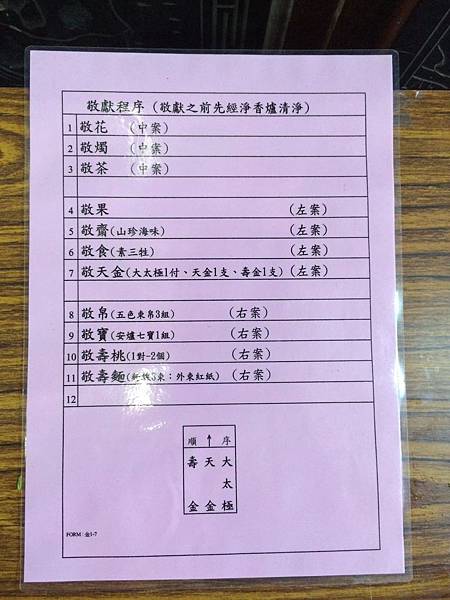 敬獻程序（敬獻之前先經淨香爐清淨）
1 敬花 （中案）
2 敬燭 （中案）
3 敬茶 （中案）
4 敬果 （左案）
5 敬齋(山珍海味) （左案）
6 敬食(素三牲) （左案）
7 敬天金(大太極1付、天金1支、壽金1支)（左案）
8 敬帛(五色束帛3組) （右案）
9 敬寶(安爐七寶1組) （右案）
10 敬壽桃(1對-2個) （右案）
11 敬壽麵(3束；外束紅紙) （右案）
12
順↑序
壽天大
太
金金極
FORM：金1-7